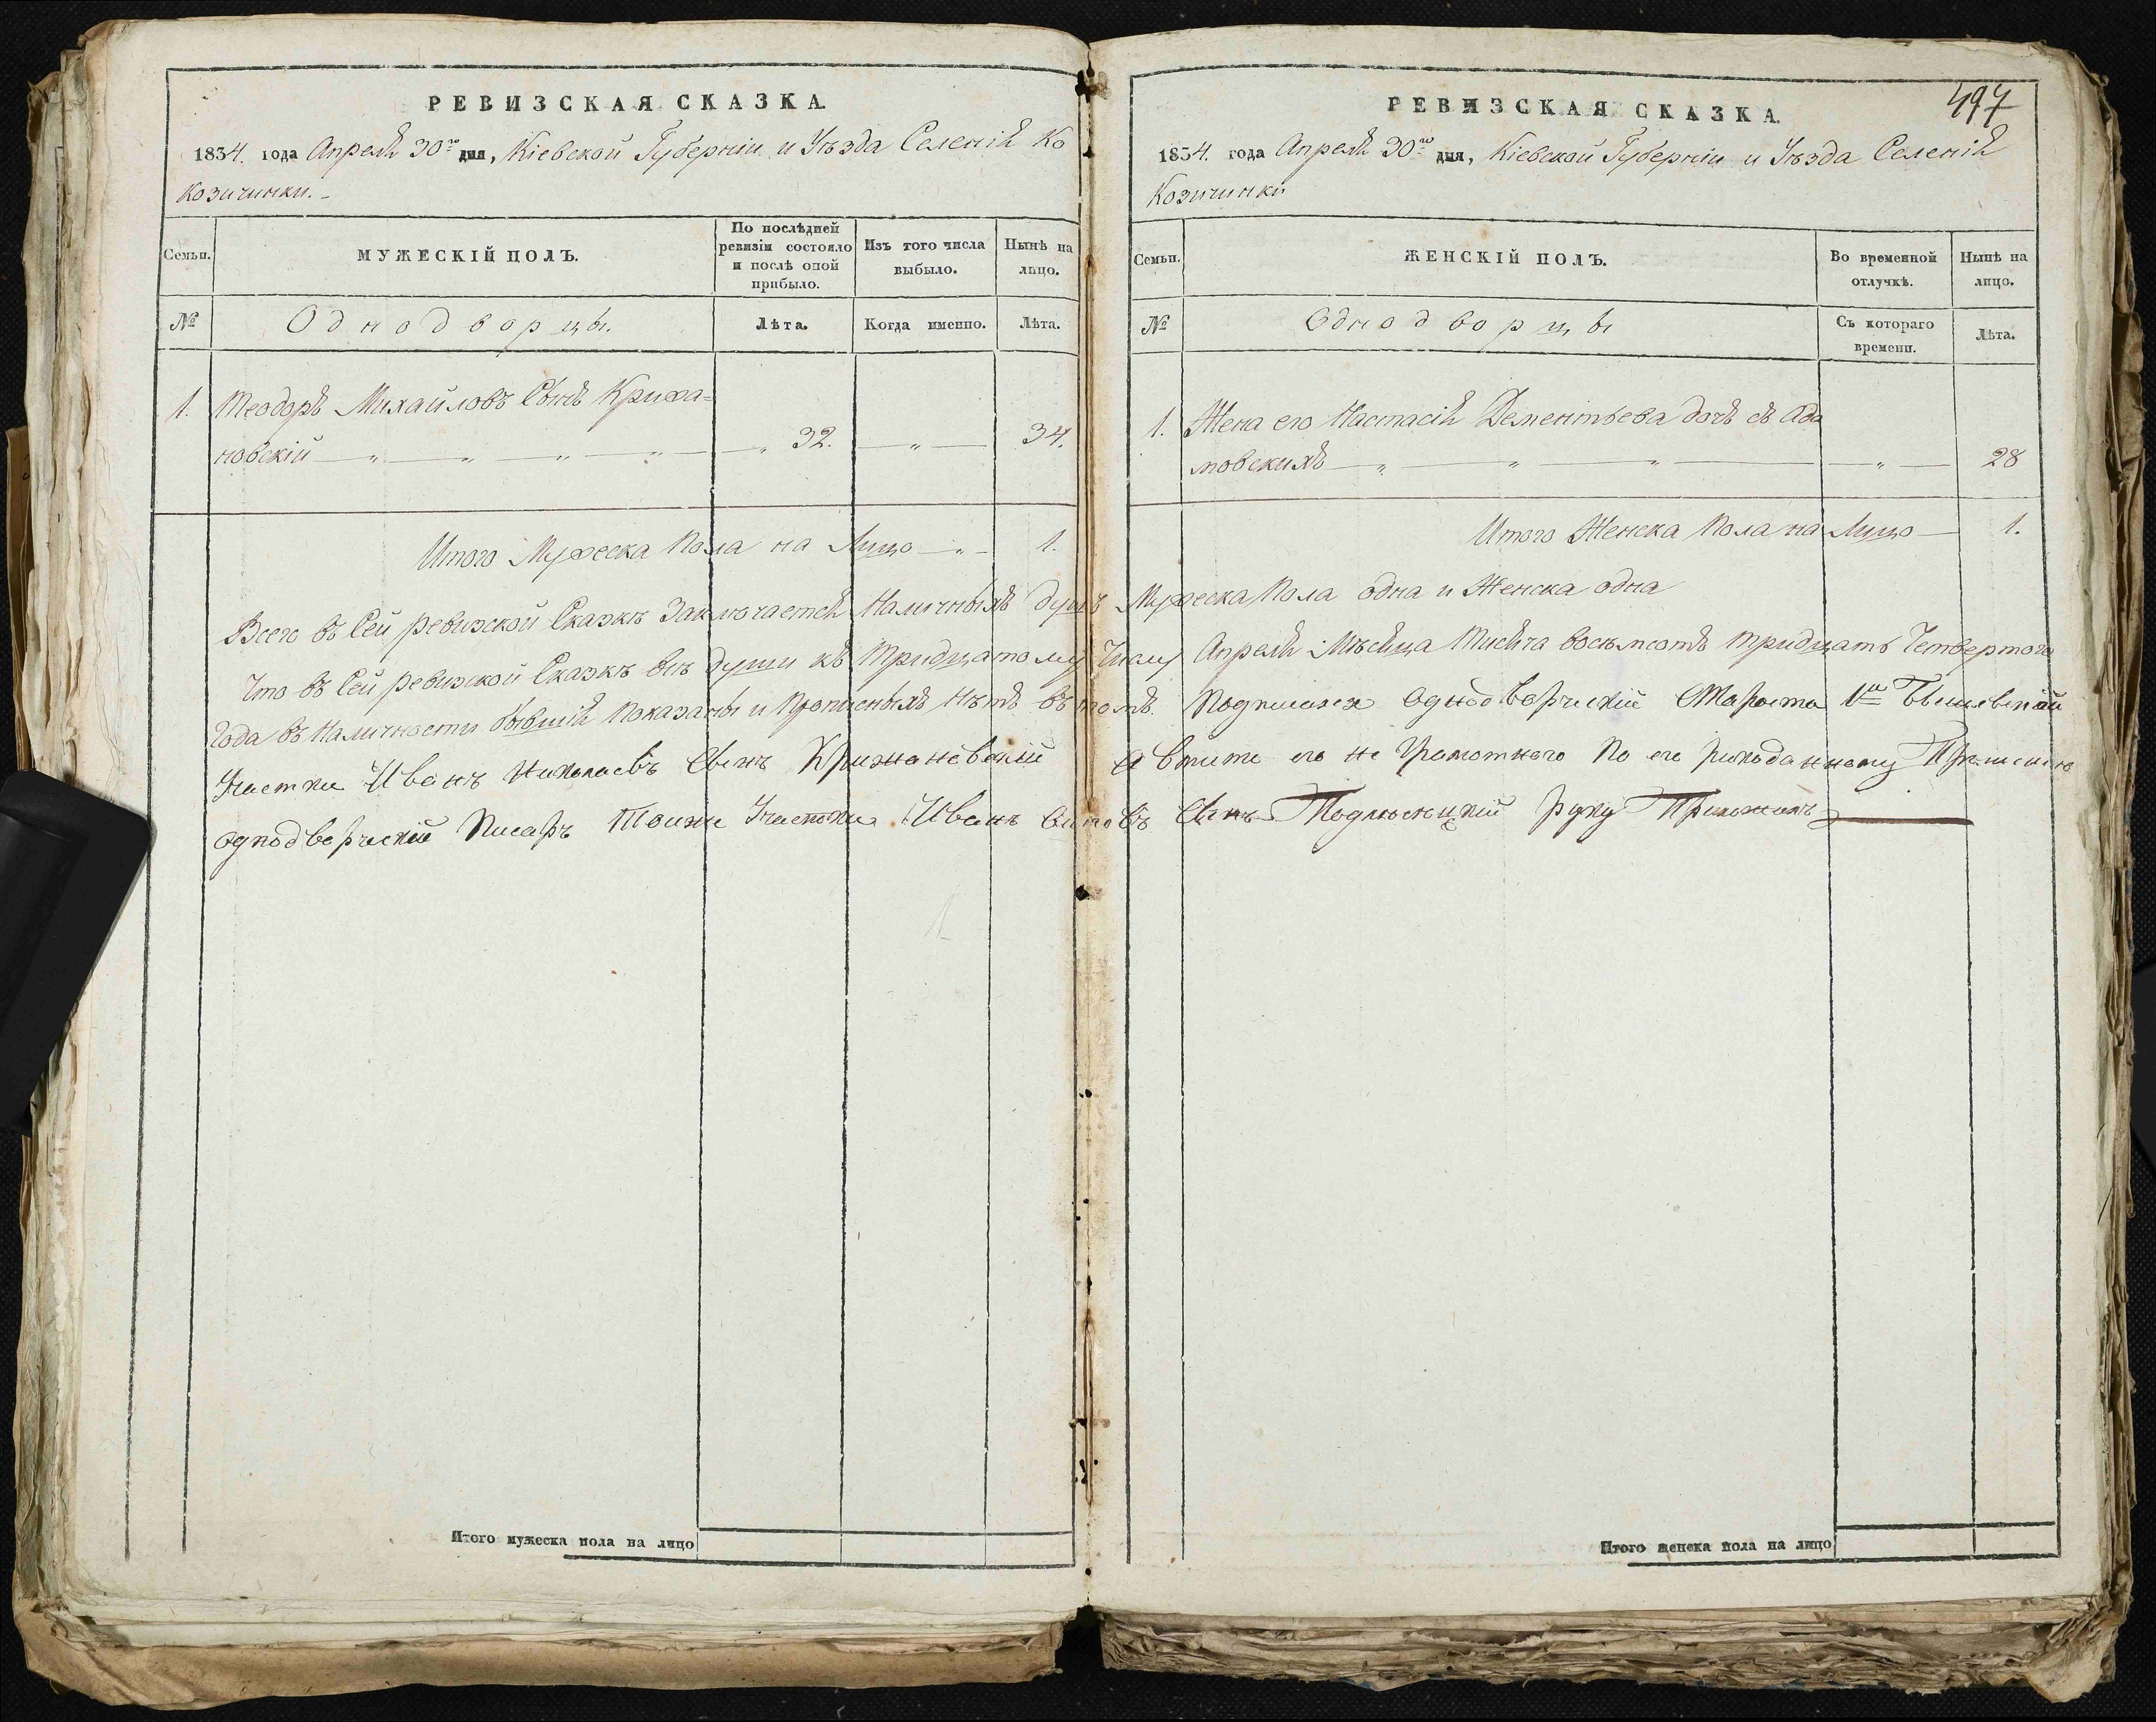 РЕВИЗСКАЯ СКАЗКА.
1834. года Апреля 30го дня, Кіевской Губерніи и Уѣзда Селенія Ко
Козичинки.
Семьи.
МУЖЕСКІЙ ПОЛЪ.
По послѣдней
ревизіи состояло
и послѣ оной
прибыло.
Изъ того числа
выбыло.
Нынѣ на
лицо.
№
Однодворцы.
Лѣта.
Когда именно.
Лѣта.
1. Теодоръ Михайловъ Сынъ Крижа=
новскій — „ — „ — „ — „ — „ 32. — „ — 34.
Итого Мужеска Пола на Лицо — „ — 1.
497
РЕВИЗСКАЯ СКАЗКА.
1834. года Апреля 30го дня, Кіевской Губерніи и Уѣзда Селенія
Козичинки
Семьи.
ЖЕНСКІЙ ПОЛЪ.
Во временной
отлучкѣ.
Нынѣ на
лицо.
№
Однодворцы
Съ котораго
времени.
Лѣта.
1. Жена его Настасія Дементьева дочь съ Ада
мовскихъ — „ — „ — „ — „ — 28
Итого Женска Пола на Лицо — 1.
Всего въ Сей ревизской Сказкѣ Заключается Наличныхъ душъ Мужеска Пола одна и Женска одна
Что въ Сей ревизской Сказкѣ всѣ души къ Тридцатому Числу Апреля Мѣсяца Тисяча восьмсотъ тридцать Четвертого
Года въ Наличности бывшія Показаны и Прописныхъ Нѣтъ въ томъ Подписался Однодворческій Староста 1го
Участка Иванъ Николаевъ Сынъ Крижановскій а вмѣсто его не Грамотного По его рукоданному Прошенію
однодворческій Писаръ Тоиже Участка Иванъ Сынъ руку Приложилъ
Итого мужеска пола на лицо
Итого женска пола на лицо